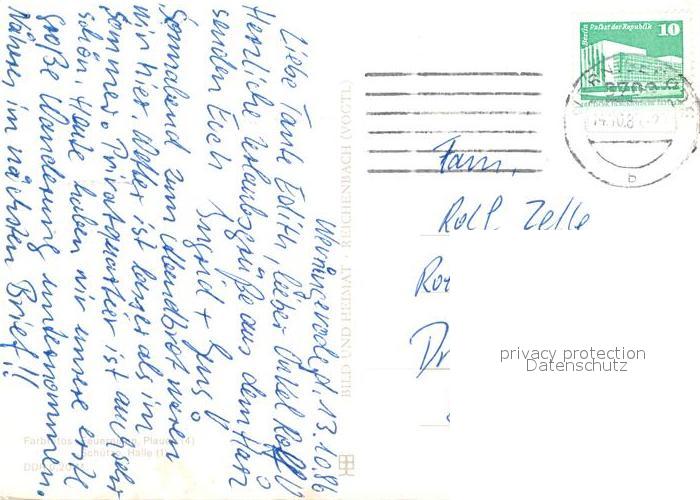 Wernigerode, d. 13.10.86
Liebe Tante Edith, lieber Onkel Rolf!
Herzliche Urlaubsgrüße aus dem Harz
senden Euch Ingrid + Gus
Sonnabend zum Abendbrot waren
wir hier. Wetter ist besser als im
Sommer. Privatquartier ist auch sehr
schön. Heute haben wir unsere erste
große Wanderung unternommen.
Näheres im nächsten Brief!!
BILD UND HEIMAT · REICHENBACH (VOGTL)
Farbfotos: Plauen (4)
Halle (1)
DDR
Berlin Palast der Republik
10
14.10.8
b
Fam.
Rolf Zelle
Ro
Dr
privacy protection
Datenschutz